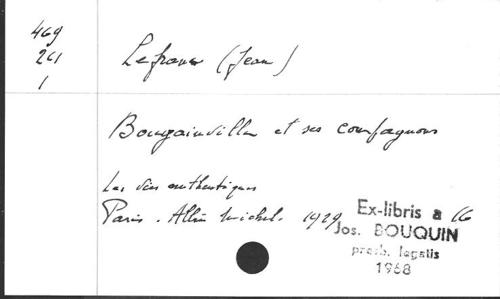 469
261
1
Lefranc (Jean)
Bougainville et ses compagnons
Les vies authentiques
Paris. Albin Michel. 1929
Ex-libris a 16
Jos. BOUQUIN
presb. legatis
1968